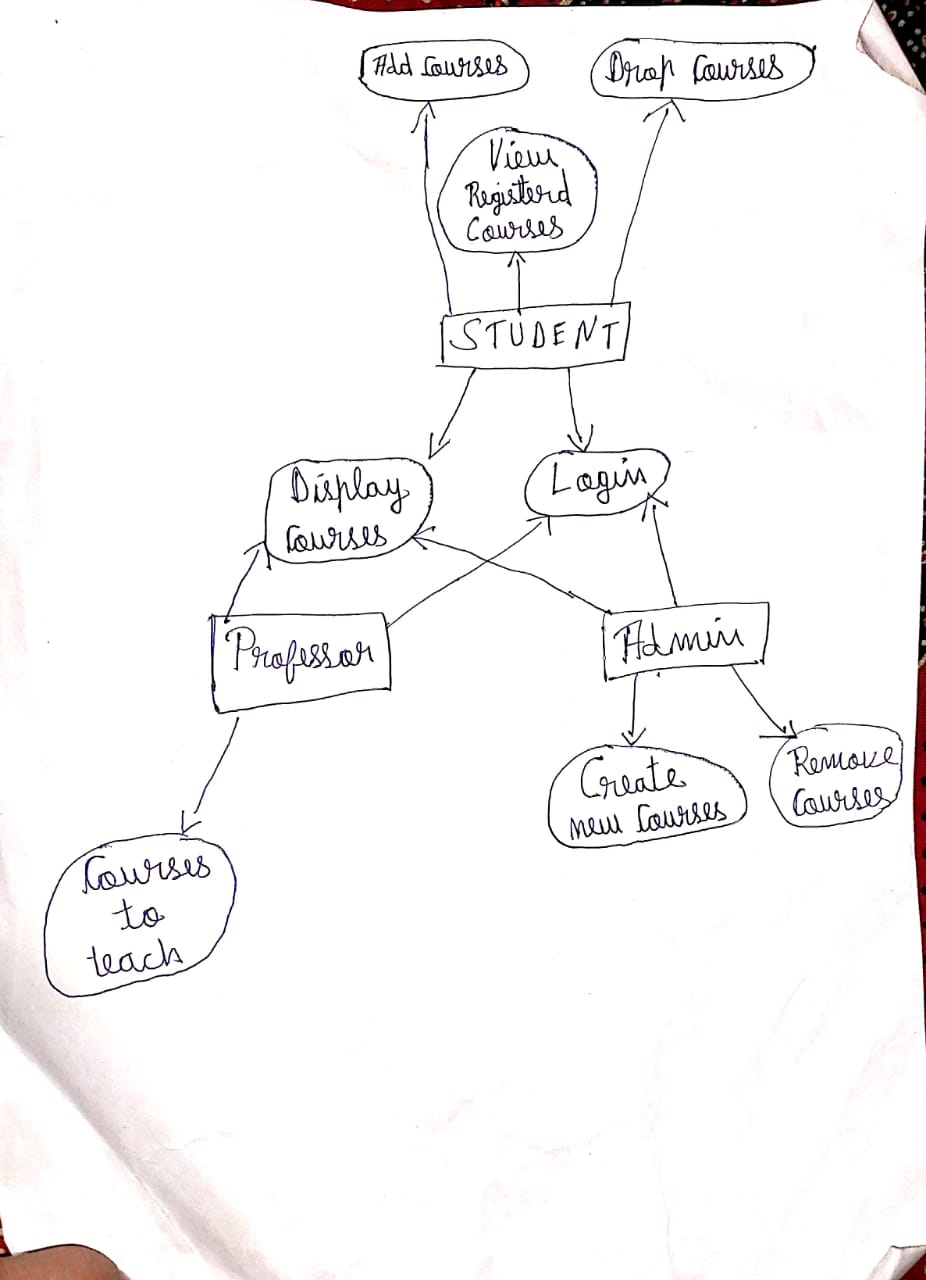 Add Courses
Drop Courses
View
Registerd
Courses
STUDENT
Display
Courses
Login
Professor
Admin
Create
new Courses
Remove
Courses
Courses
to
teach